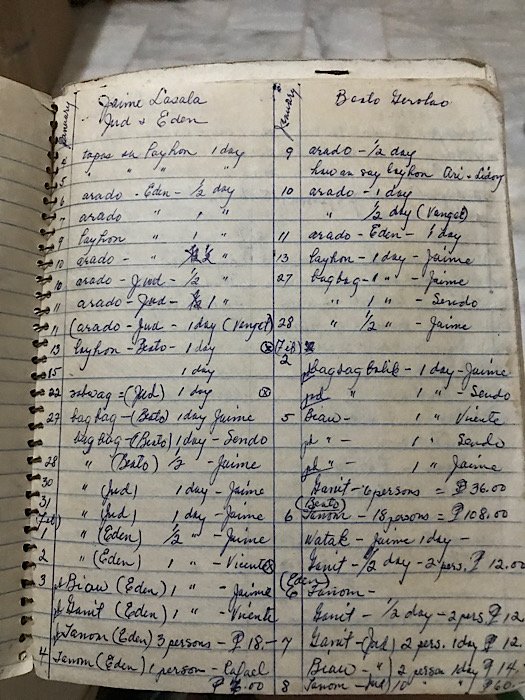 January
Jaime Lasala
Jud & Eden
tapas sa layhon 1 day
" " " 1 "
6 arado - Eden - 1/2 day
7 arado " 1 "
9 layhon " 1 "
10 arado - " 1/2 "
10 arado - Jud - 1/2 "
11 arado - Jud - 1 "
11 (arado - Jud - 1 day (Vanget)
13 layhon - Besto - 1 day
15 1 day
22 = (Jud) 1 day
27 bagbag - (Besto) 1 day Jaime
bagbag - (Besto) 1 day - Sendo
28 " (Besto) 1/2 - Jaime
30 " (Jud) 1 day - Jaime
31 " (Jud) 1 day - Jaime
(Feb)
1 " (Eden) 1/2 " - Jaime
2 " (Eden) 1 " - Vicente
3 pd Biaw (Eden) 1 " - Jaime
pd Ganit (Eden) 1 " - Vicente
pd Tanom (Eden) 3 persons - ₱ 18.-
4 Tanom (Eden) 1 person - Rafael
₱ 6.00
January
Besto Gerolao
9 arado - 1/2 day
layhon Ari & Lidong
10 arado - 1 day
" 1/2 day (Vanget)
11 arado - Eden - 1 day
13 layhon - 1 day - Jaime
27 bagbag - 1 " - Jaime
" 1 " - Sendo
28 " 1/2 " - Jaime
(Feb)
2 pd bagbag balik - 1 day - Jaime
pd " 1 " - Sendo
5 Biaw - 1 " Vicente
pd " - 1 " Sendo
pd " - 1 " Jaime
Ganit - 6 persons = ₱ 36.00
(Besto)
6 Tanom - 18 persons = ₱ 108.00
Watak - Jaime 1 day -
Ganit - 1/2 day - 2 pers. ₱ 12.00
(Eden)
6 Tanom -
Ganit - 1/2 day - 2 pers. ₱ 12
7 Ganit - (Jud) 2 pers. 1 day ₱ 12.
Biaw - ") 2 person 1 day ₱ 14.
8 Tanom - (Jud) 10 " " ₱ 60.